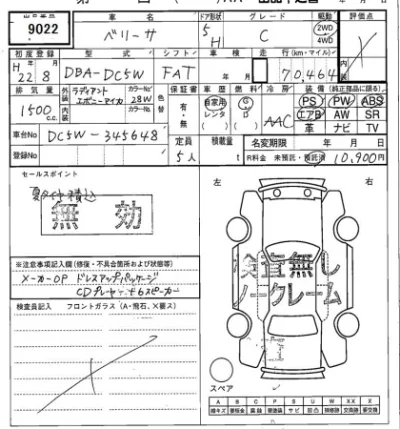 出品番号 車名 ドア形状 グレード 駆動 評価点
9022 ベリーサ 5H C 2WD 4WD
初度登録 型式 シフト 車検 走行(km・マイル) 内装
H22年8月 DBA-DC5W FAT 年 月 70,464
排気量 外装 ラディアントエボニーマイカ カラーNo. 28W 色替 保証書 車歴 燃料 冷房 装備(純正部品に限る)
1500 c.c. 内装 カラーNo. 有・無 自家用 レンタ G D AAC PS PW ABS
エアB AW SR
革 ナビ TV
車台No DC5W-345648 定員 積載量 名変期限 年 月 日
登録No 5人 t R料金 未預託・預託済 10,900円
セールスポイント
夏タイヤ積込
無効
左 右
検査無し
ノークレーム
※注意事項記入欄(修復・不具合箇所および状態等)
メーカーOP ドレスアップパッケージ
CDプレーヤー+6スピーカー
検査員記入 フロントガラス(A・飛石、X要ス)
スペア
A B C P S U W X XX